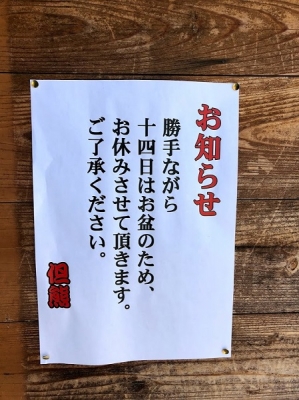 お知らせ
勝手ながら
十四日はお盆のため、
お休みさせて頂きます。
ご了承ください。
但熊